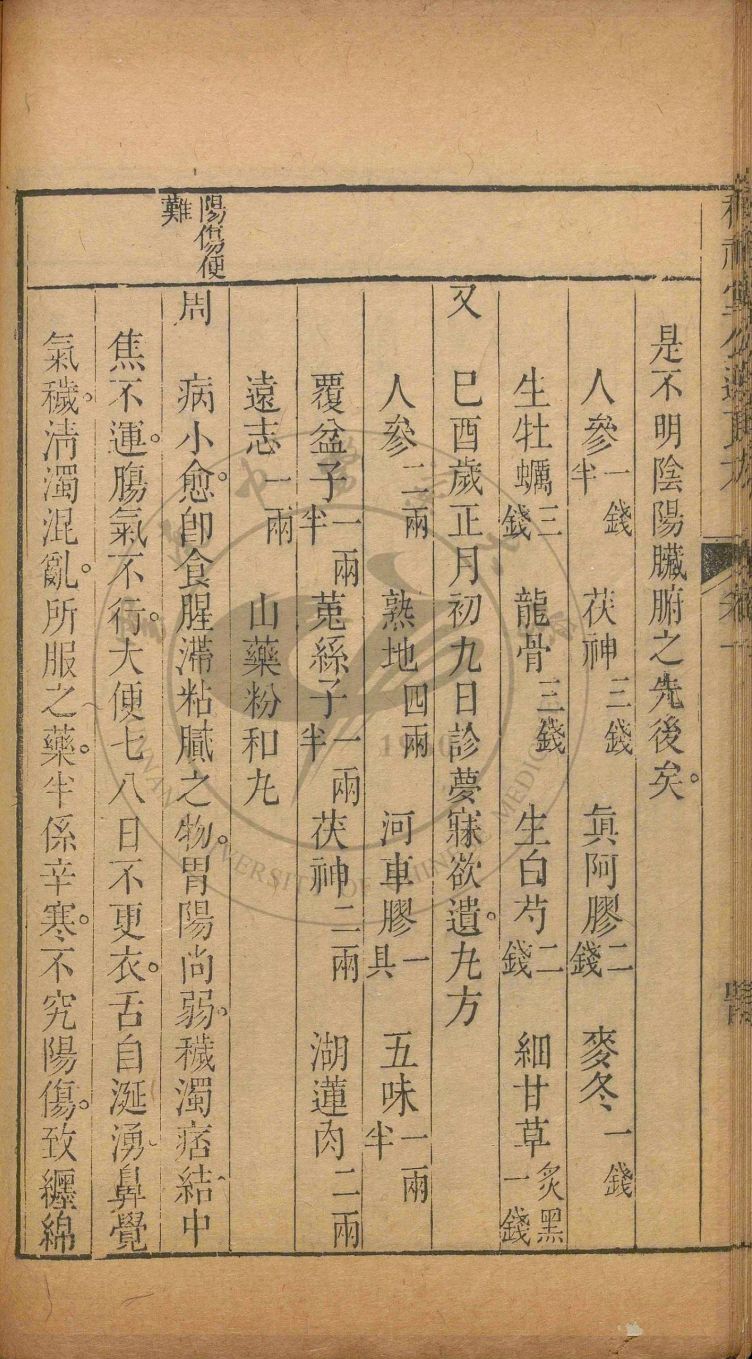 是不明陰陽臟腑之先後矣。
人參一錢半 茯神三錢 真阿膠二錢 麥冬一錢
生牡蠣三錢 龍骨三錢 生白芍二錢 細甘草炙黑一錢
又 巳酉歲正月初九日診夢寐欲遺。丸方
人參二兩 熟地四兩 河車膠一具 五味一兩半
覆盆子一兩半 菟絲子一兩半 茯神二兩 湖蓮肉二兩
遠志一兩 山藥粉和丸
陽傷便難
周 病小愈。卽食腥滯粘膩之物。胃陽尚弱。穢濁痞結中
焦不運。腸氣不行。大便七八日不更衣。舌自涎湧鼻覺
氣穢。淸濁混亂。所服之藥。半係辛寒。不究陽傷。致纏綿